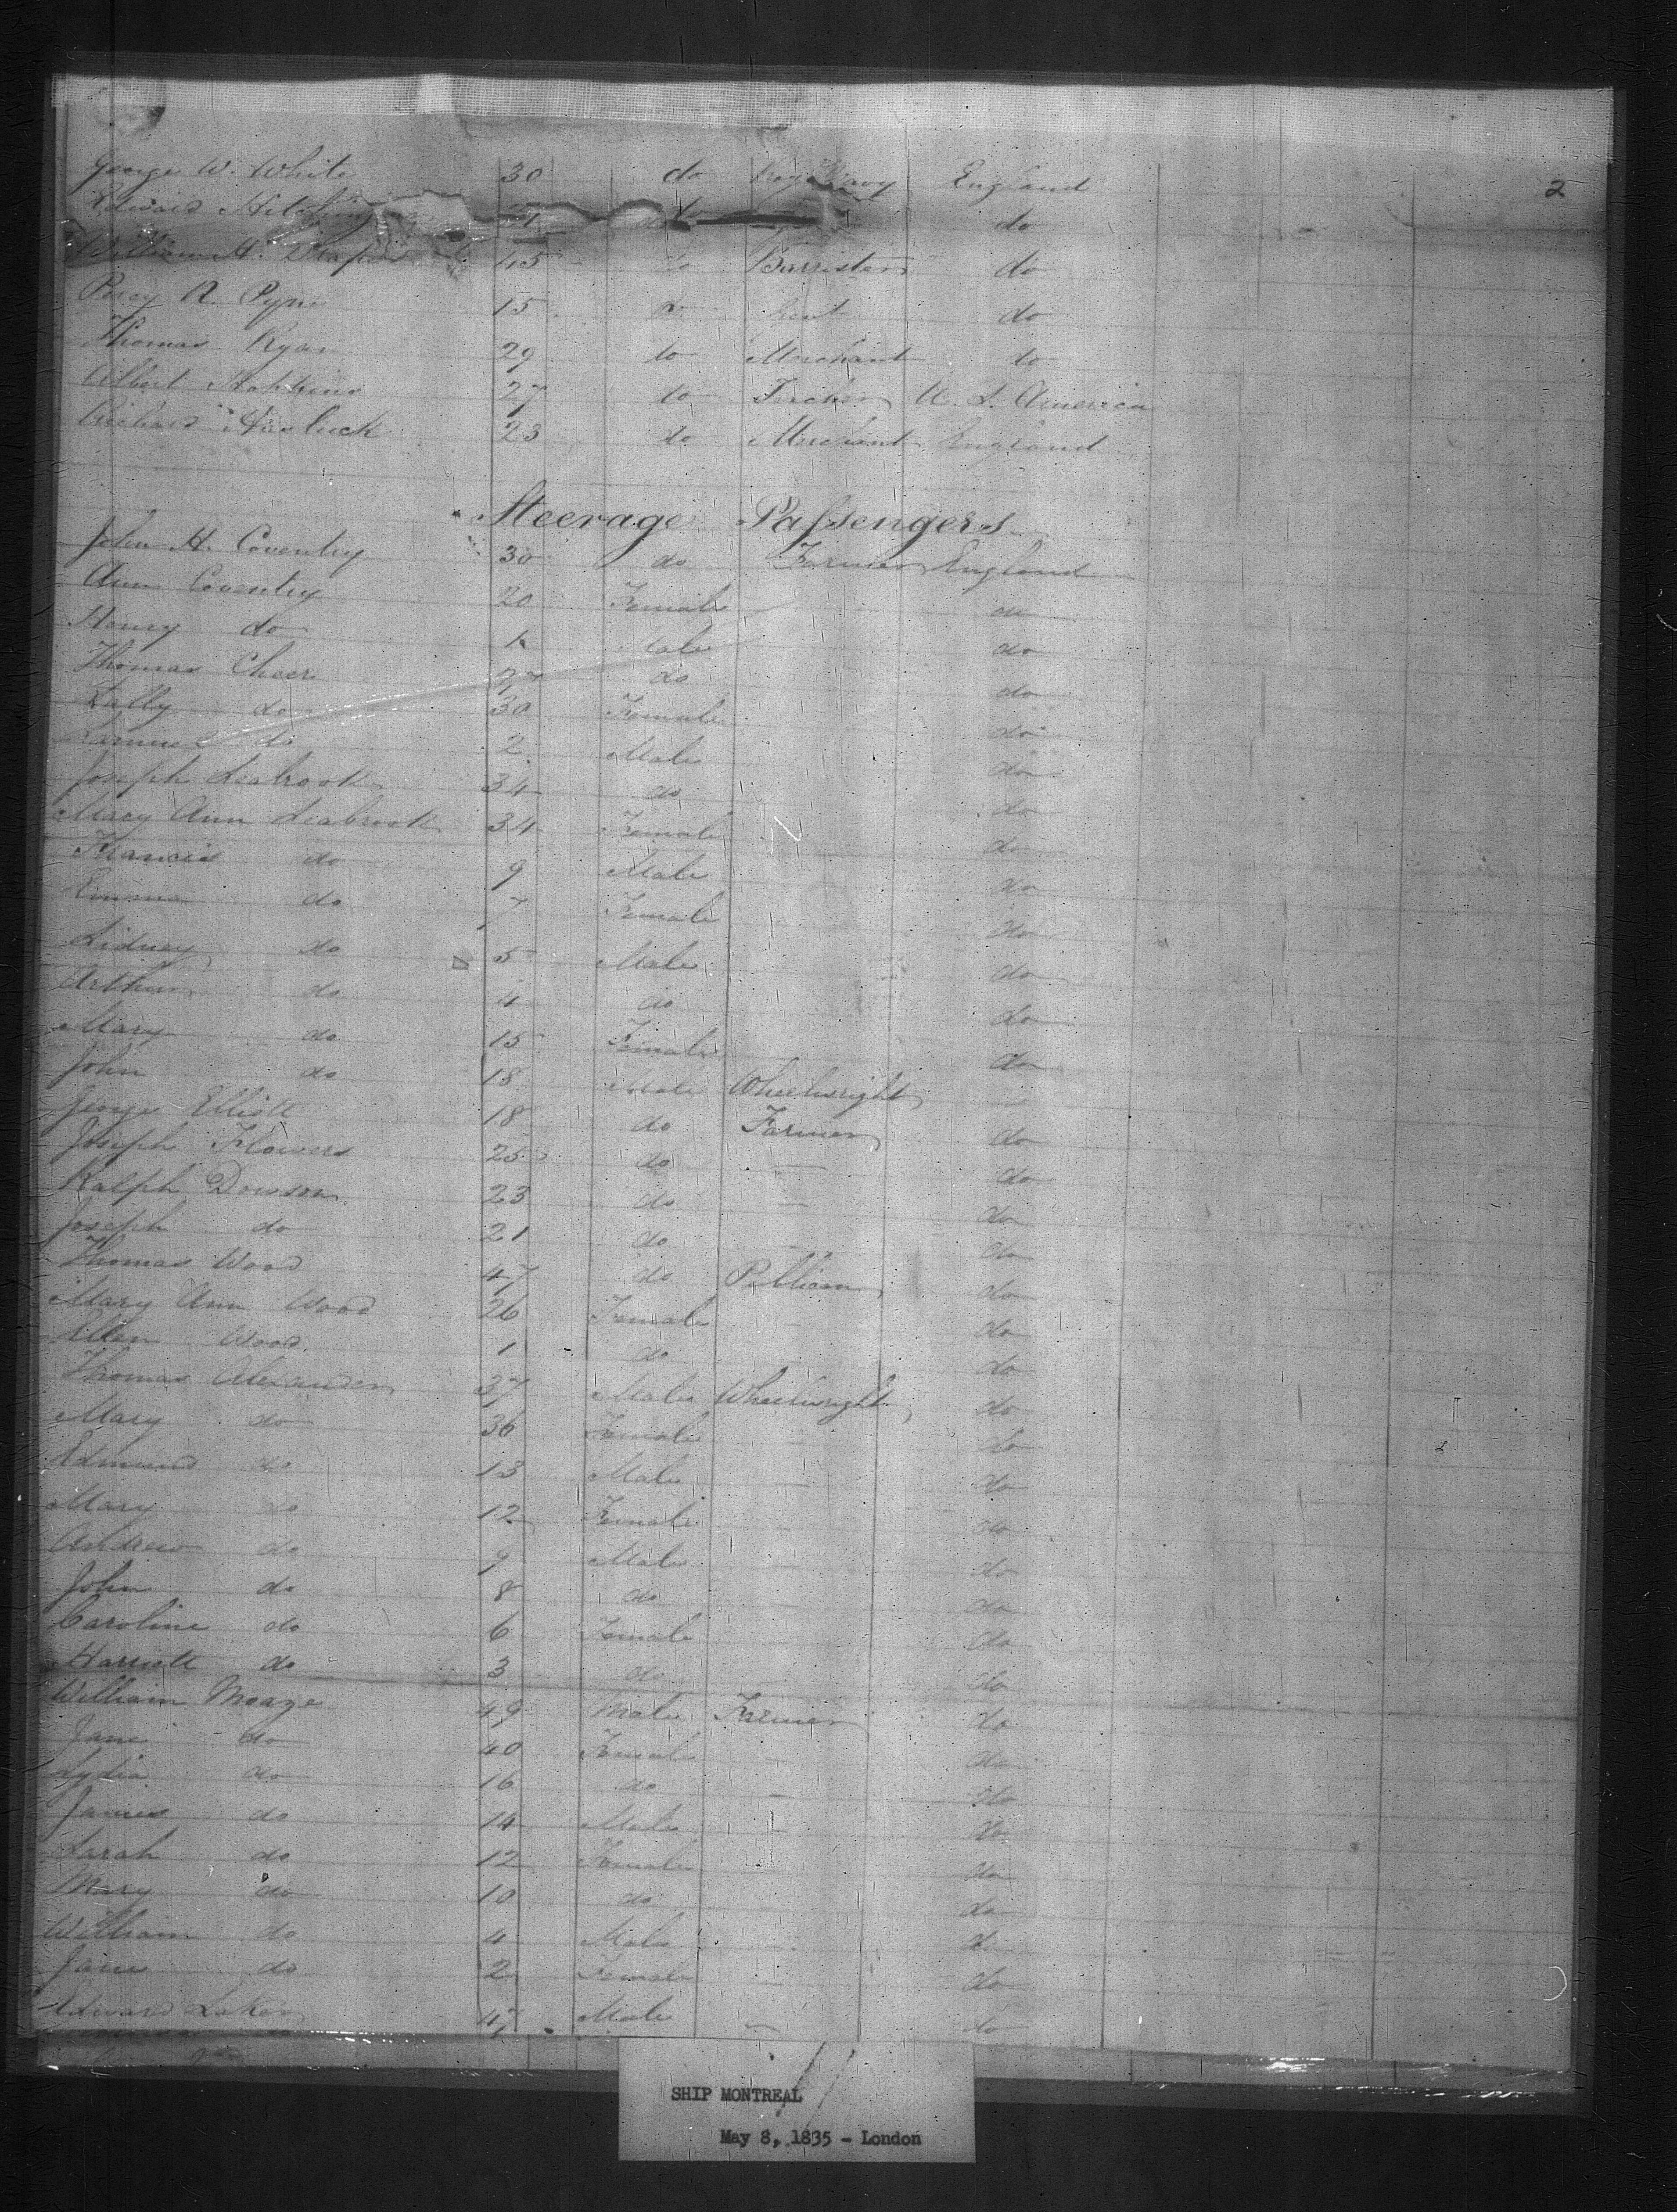 2
George W. White 30 do Royal Navy England
Edward do do
William H. Draper 45 do Barrister do
Percy R. Pyne 15 do Gent do
Thomas Ryan 29 do Merchant do
Albert Hopkins 27 do Teacher U. S. America
Richard Hasluck 23 do Merchant England
Steerage Passengers
John H. Coventry 30 do Farmer England
Ann Coventry 20 Female do
Henry do 1 Male do
Thomas Cheer 27 do do
Sally do 30 Female do
Samuel do 2 Male do
Joseph Seabrook 34 do do
Mary Ann Seabrook 34 Female do
Francis do 9 Male do
Emma do 7 Female do
Sidney do 5 Male do
Arthur do 4 do do
Mary do 15 Female do
John do 18 Male Wheelwright
George Elliott 18 do Farmer do
Joseph Flowers 25 do — do
Ralph Dowson 23 do — do
Joseph do 21 do do
Thomas Wood 47 do Publican do
Mary Ann Wood 26 Female — do
Ellen Wood 1 do do
Thomas Alexander 37 Male Wheelwright do
Mary do 36 Female — do
Edmund do 13 Male — do
Mary do 12 Female — do
Andrew do 9 Male — do
John do 8 do — do
Caroline do 6 Female — do
Harriett do 3 do do
William Moaze 49 Male Farmer do
Jane do 40 Female — do
Lydia do 16 do — do
James do 14 Male — do
Sarah do 12 Female do
Mary do 10 do do
William do 4 Male — do
Jane do 2 Female — do
Edward Laker 47 Male — do
SHIP MONTREAL
May 8, 1835 - London